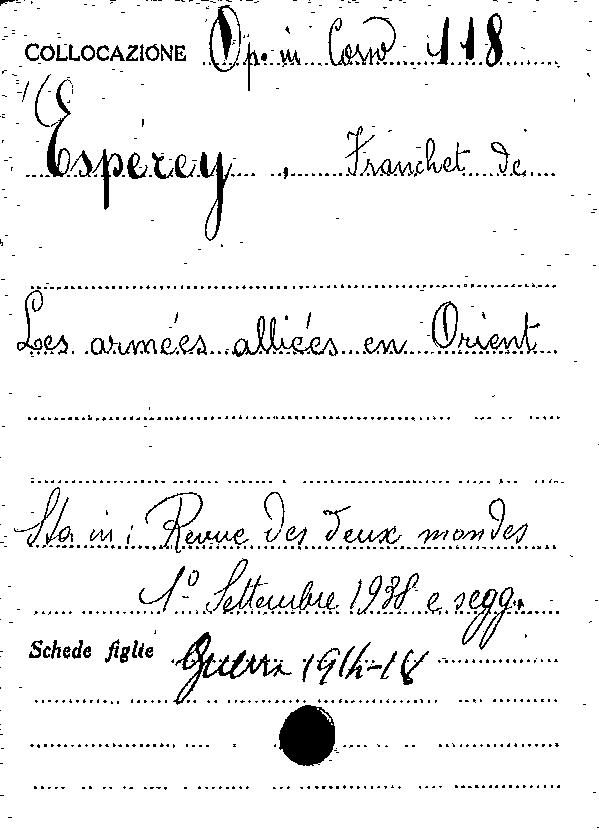 COLLOCAZIONE Op. in Corso 118
Espérey, Franchet de
Les armées alliées en Orient
Sta in: Revue des deux mondes
1º Settembre 1938 e segg.
Schede figlie Guerra 1914-18